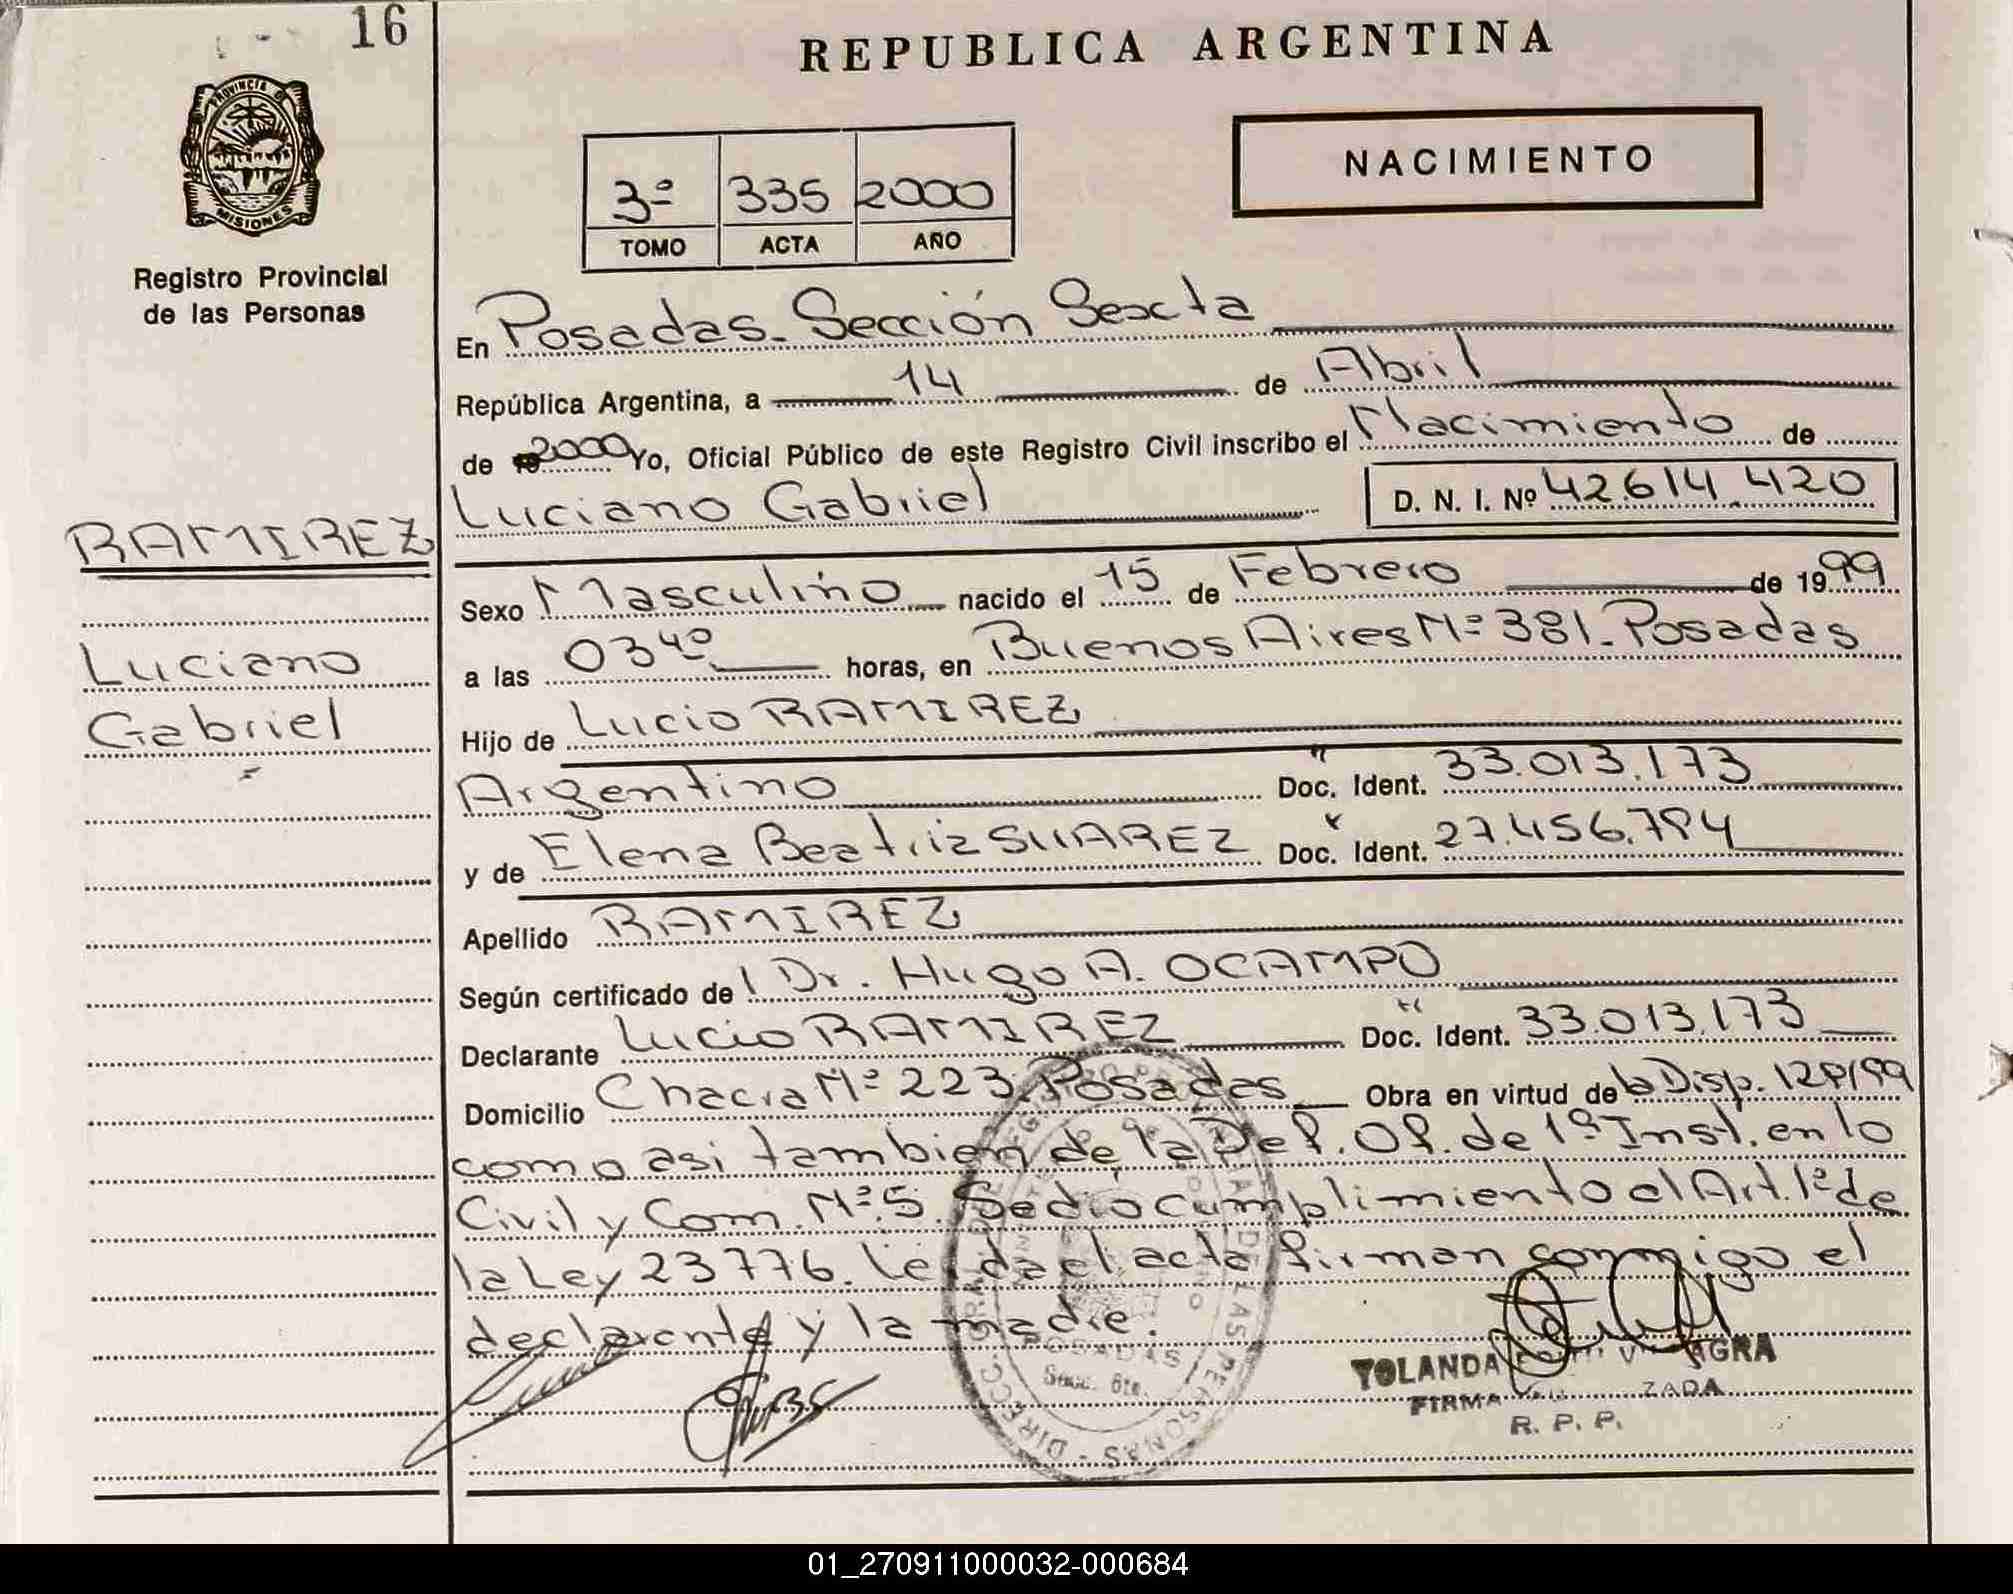 16
REPUBLICA ARGENTINA
PROVINCIA DE
MISIONES
Registro Provincial
de las Personas
NACIMIENTO
3º 335 2000
TOMO ACTA AÑO
En Posadas. Sección Sexta
República Argentina, a 14 de Abril
de 2000 Yo, Oficial Público de este Registro Civil inscribo el Nacimiento de
Luciano Gabriel D. N. I. Nº 42.614.420
RAMIREZ
Luciano
Gabriel
Sexo Masculino nacido el 15 de Febrero de 1999
a las 03 40 horas, en Buenos Aires Nº 381. Posadas
Hijo de Lucio RAMIREZ
Argentino Doc. Ident. 33.013.173
y de Elena Beatriz SUAREZ Doc. Ident. 27.456.794
Apellido RAMIREZ
Según certificado del Dr. Hugo A. OCAMPO
Declarante Lucio RAMIREZ Doc. Ident. 33.013.173
Domicilio Chacra Nº 223. Posadas Obra en virtud de la Disp. 129/99
como asi tambien de la Def. Of. de 1º Inst. en lo
Civil y Com. Nº 5. Se dio cumplimiento al Art. 1º de
la Ley 23776. Leida el acta firman conmigo el
declarante y la madre.
POSADAS
Secc. 6ta.
YOLANDA
FIRMA
R. P. P.
01_270911000032-000684